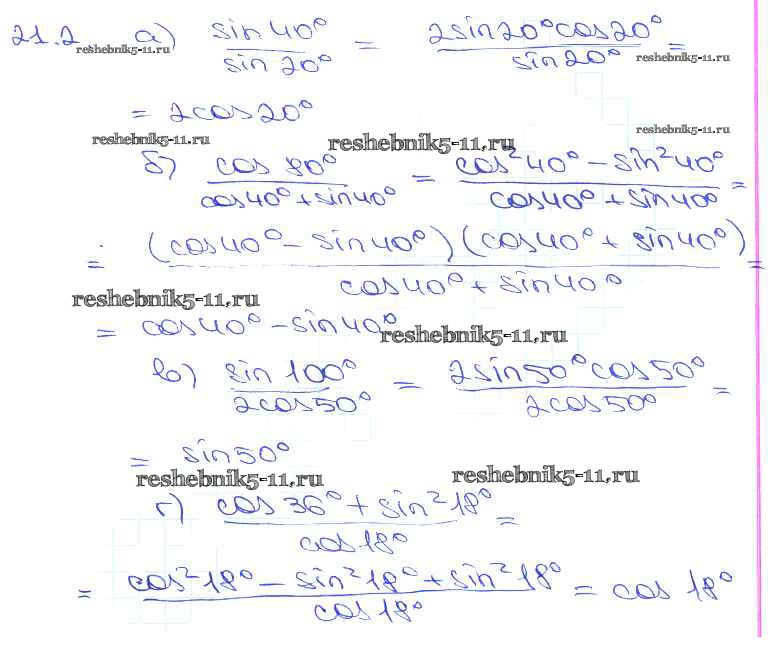 21.2 а) sin 40° / sin 20° = 2sin20°cos20° / sin20° =
reshebnik5-11.ru reshebnik5-11.ru
= 2cos20°
reshebnik5-11.ru reshebnik5-11.ru reshebnik5-11.ru
б) cos 80° / cos40°+sin40° = cos²40° − sin²40° / cos40° + sin40° =
= (cos40° − sin40°)(cos40° + sin40°) / cos40° + sin40° =
reshebnik5-11.ru
= cos40° − sin40°
reshebnik5-11.ru
в) sin 100° / 2cos50° = 2sin50°cos50° / 2cos50° =
= sin50°
reshebnik5-11.ru reshebnik5-11.ru
г) cos 36° + sin²18° / cos18° =
= cos²18° − sin²18° + sin²18° / cos18° = cos 18°